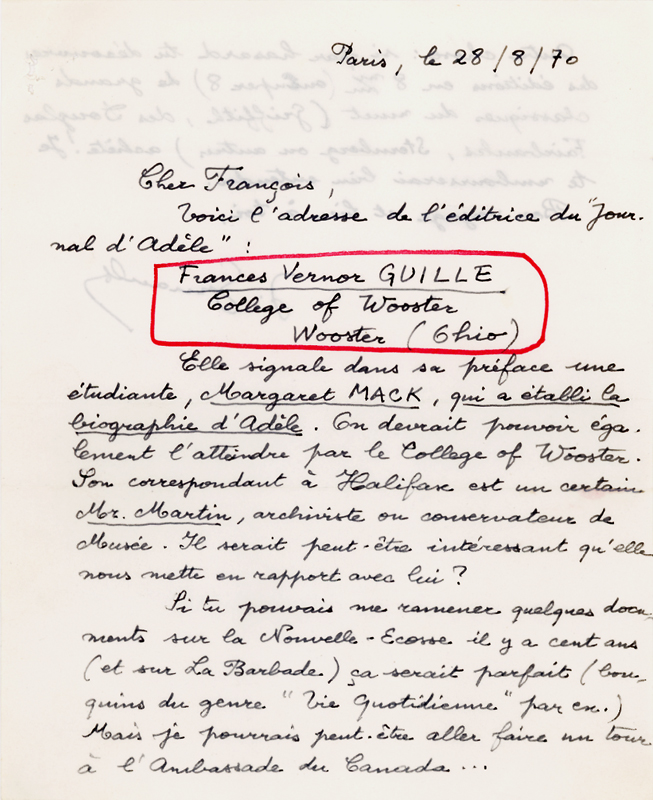 Paris, le 28/8/70
Cher François,
Voici l'adresse de l'éditrice du "Jour-
nal d'Adèle" :
Frances Vernor GUILLE
College of Wooster
Wooster (Ohio)
Elle signale dans sa préface une
étudiante, Margaret MACK, qui a établi la
biographie d'Adèle. On devrait pouvoir éga-
lement l'atteindre par le College of Wooster.
Son correspondant à Halifax est un certain
Mr. Martin, archiviste ou conservateur de
Musée. Il serait peut-être intéressant qu'elle
nous mette en rapport avec lui ?
Si tu pouvais me ramener quelques docu-
ments sur la Nouvelle-Ecosse il y a cent ans
(et sur La Barbade) ça serait parfait (bou-
quins du genre "Vie Quotidienne" par ex.)
Mais je pourrais peut-être aller faire un tour
à l'Ambassade du Canada ...